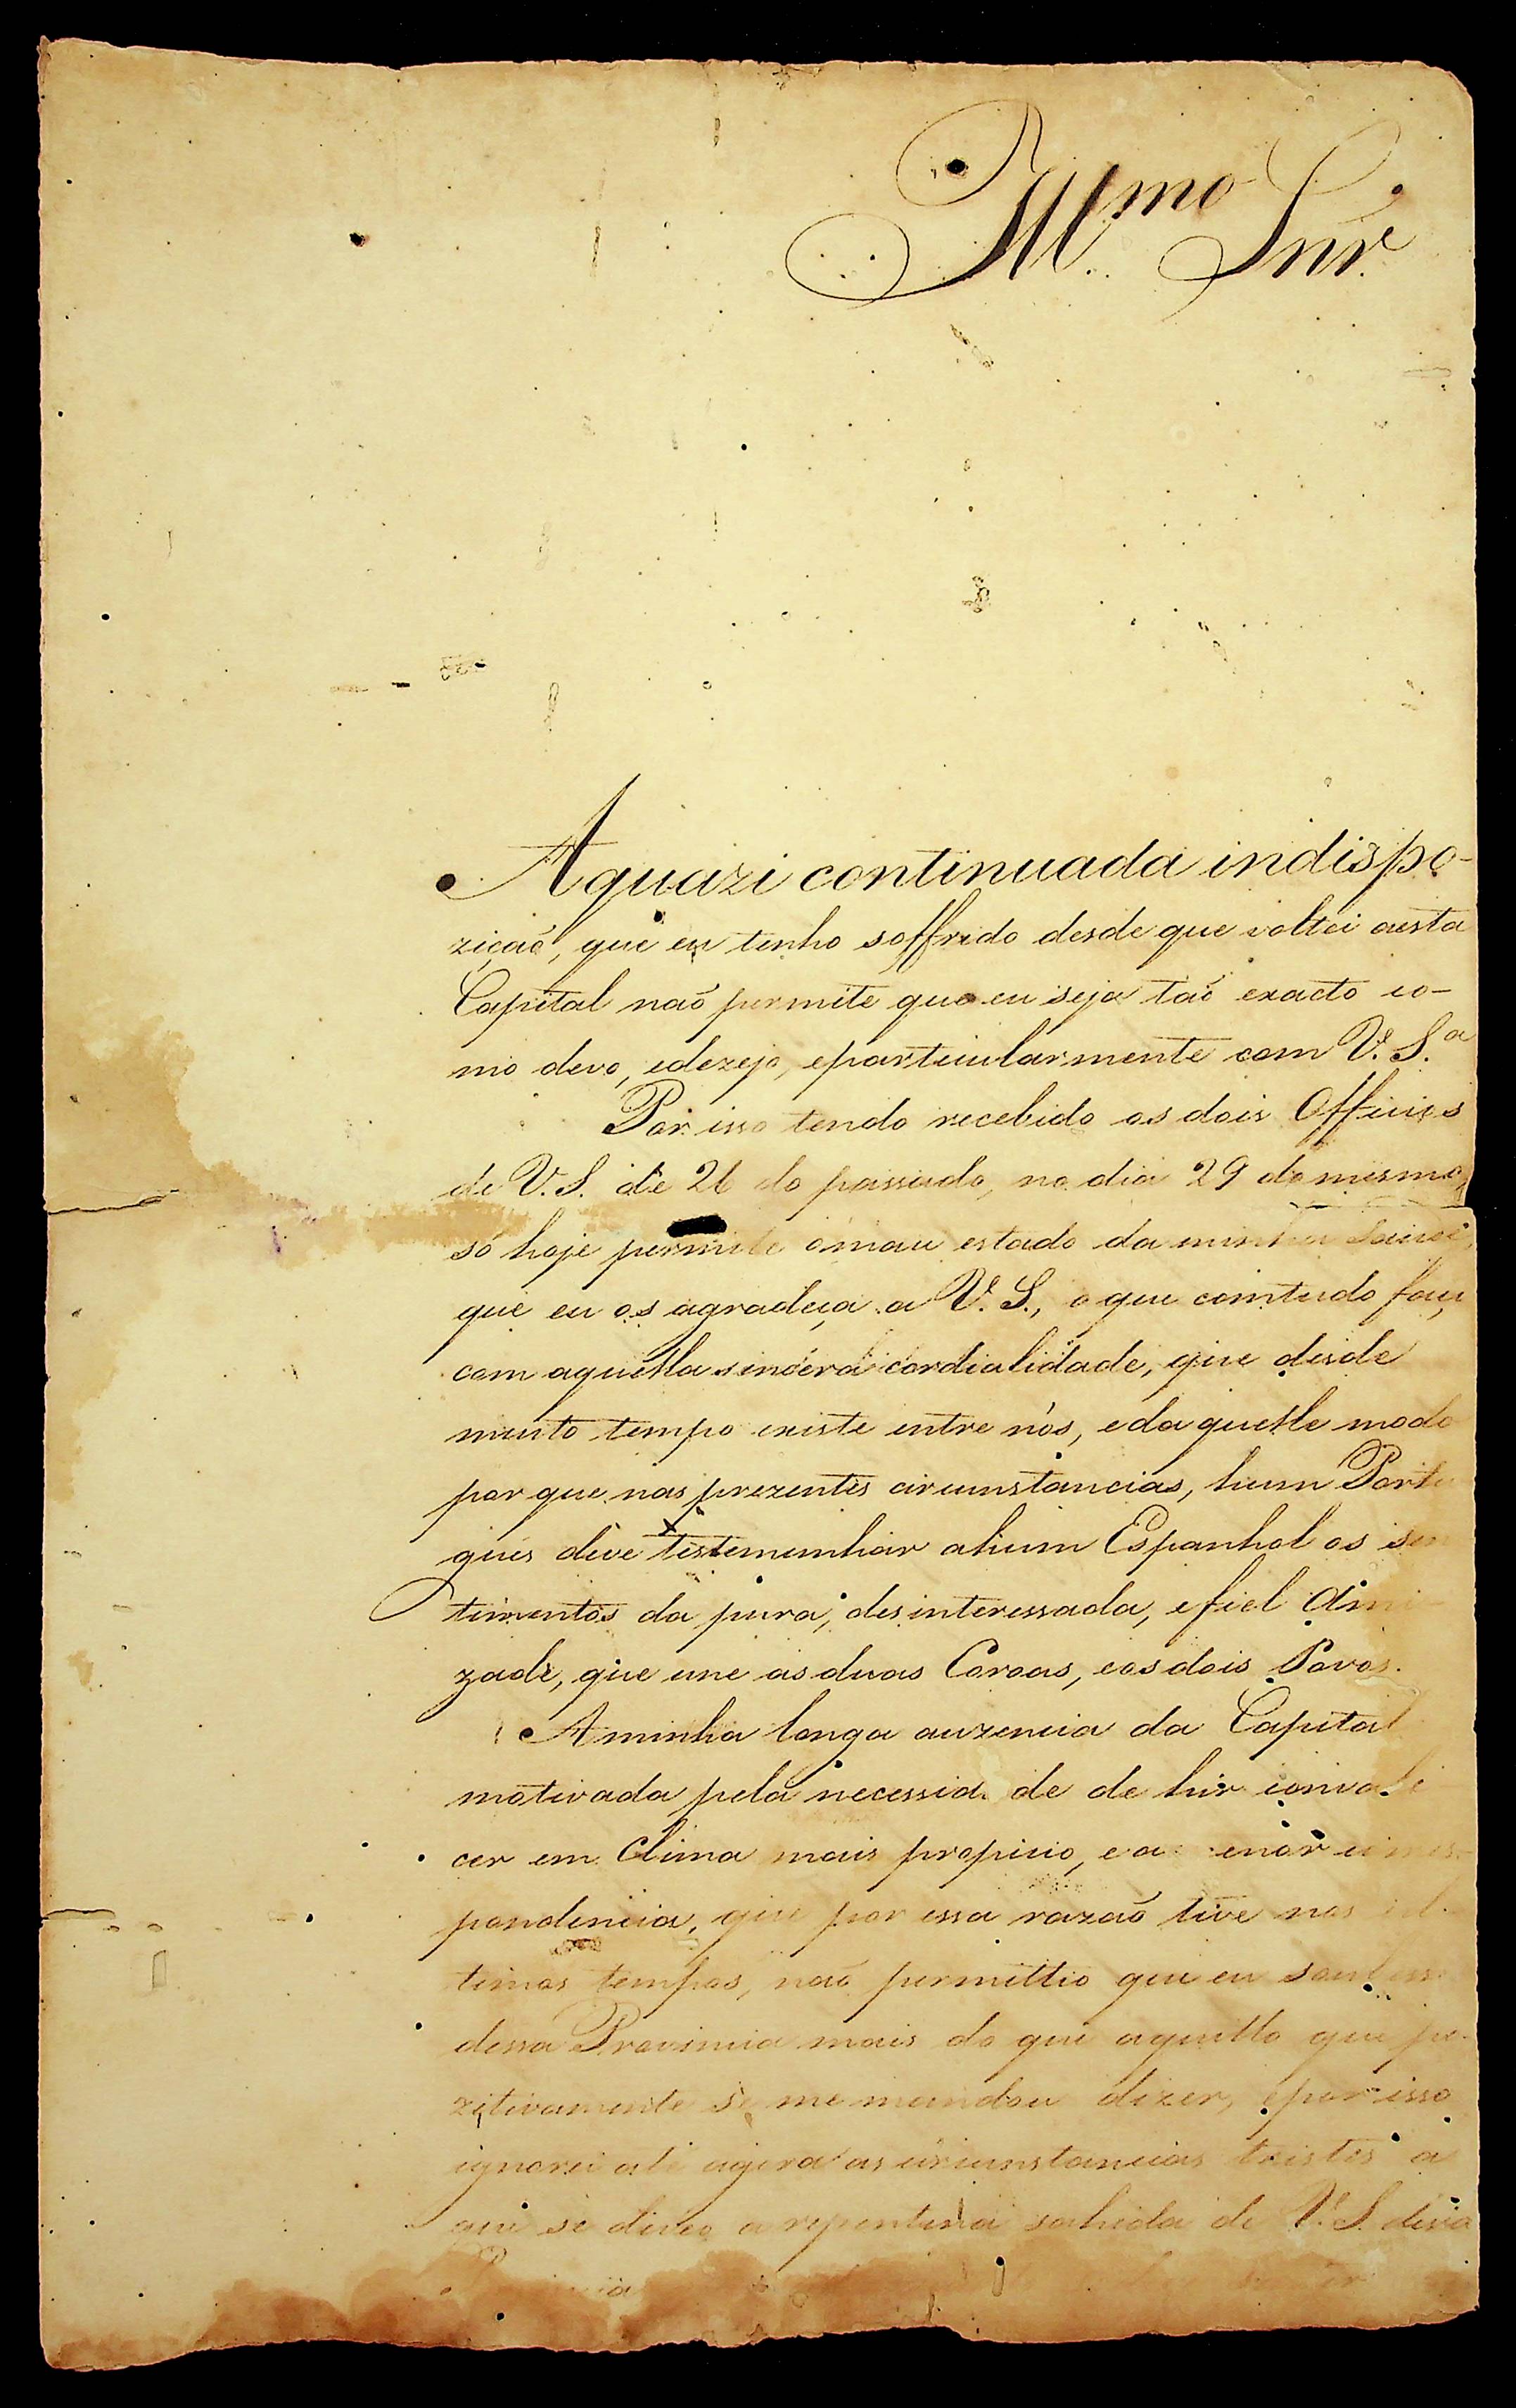 Ill.mo Snr.
A quazi continuada indispo-
zição, que eu tenho soffrido desde que voltei aesta
Capital naõ permite que eu seja taõ exacto co-
mo devo, edezejo, eparticularmente com V. S.a
Por isso tendo recebido os dois Officios
de V. S. de 26 do passado, no dia 29 do mesmo,
só hoje permite omau estado da minha Saude,
que eu os agradeça a V. S., o que comtudo faço
com aquella sincera cordialidade, que desde
muito tempo existe entre nós, eda quelle modo
por que nas prezentes circumstancias, hum Portu
gues deve testemunhar ahum Espanhol os sen
timentos da pura, desinteressada, efiel Ami-
zade, que une as duas Coroas, eos dois Povos.
Aminha longa auzencia da Capital
motivada pela necessidade de hir convale
cer em Clima mais propicio, ea menor corres-
pondencia, que por essa razaõ tive nos ul-
timos tempos, naõ permittio que eu soubesse
dessa Provincia mais do que aquillo que po-
zitivamente se me mandou dizer, epor isso
ignorei até agora as circumstancias tristes a
que se deveo a repentina sahida de V. S. dessa